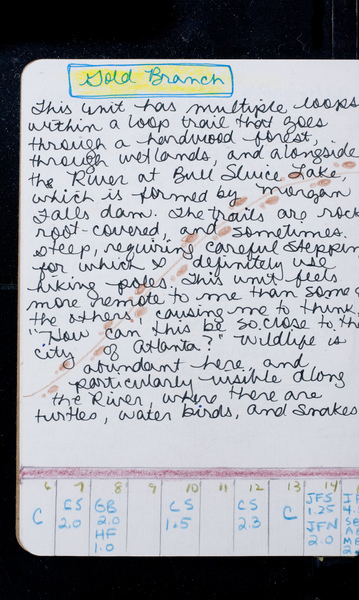 Gold Branch
This unit has multiple loops
within a loop trail that goes
through a hardwood forest,
through wetlands, and alongside
the River at Bull Sluice Lake,
which is formed by Morgan
Falls dam. The trails are rock
root-covered, and sometimes
steep, requiring careful steppin
for which I definitely use
hiking poles. This unit feels
more remote to me than some o
the others, causing me to think,
"How can this be so close to th
city of Atlanta?" Wildlife is
abundant here, and
particularly visible along
the River, where there are
turtles, water birds, and snakes
6 7 8 9 10 11 12 13 14
C CS 2.0 GB 2.0 HF 1.0 CS 1.5 CS 2.3 C JFS 1.25 JFN 2.0